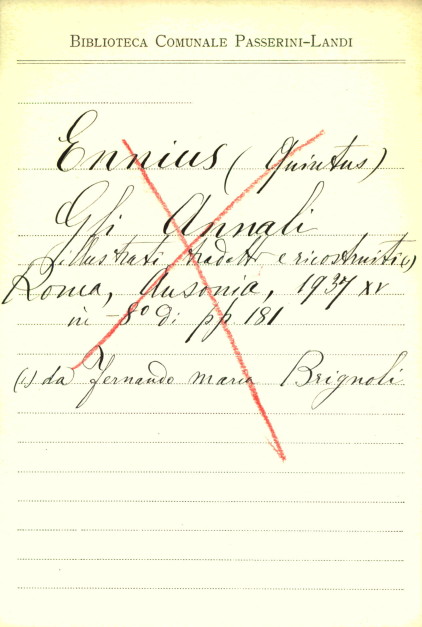 BIBLIOTECA COMUNALE PASSERINI-LANDI
Ennius (Quintus)
Gli Annali
illustrati tradotti e ricostruiti (1)
Roma, Ausonia, 1937 XV
in -8° di pp 181
(1) da Fernando Maria Brignoli